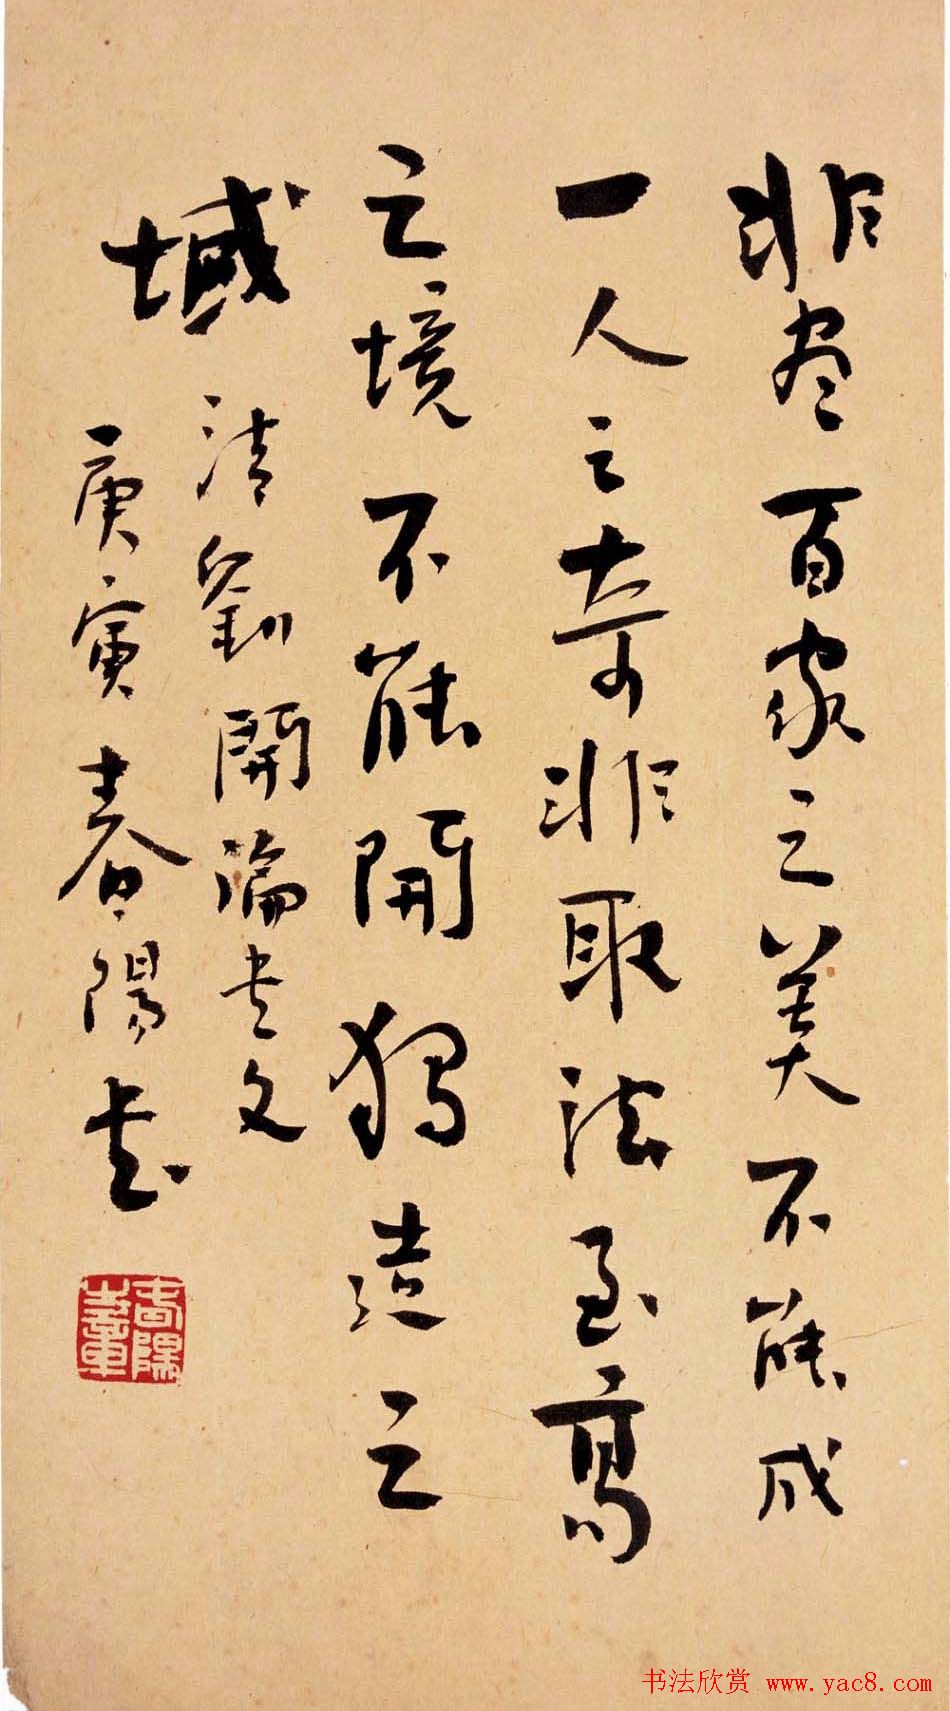 非尽百家之美不能成
一人之奇非取法至高
之境不能開獨造之
域
清劉開論書文
庚寅春陽書
书法欣赏 www.yac8.com